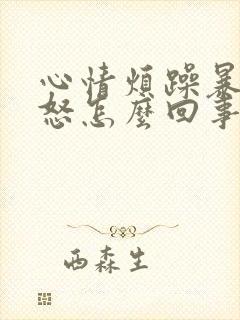 心情煩躁暴
怒怎麼回事
西森生